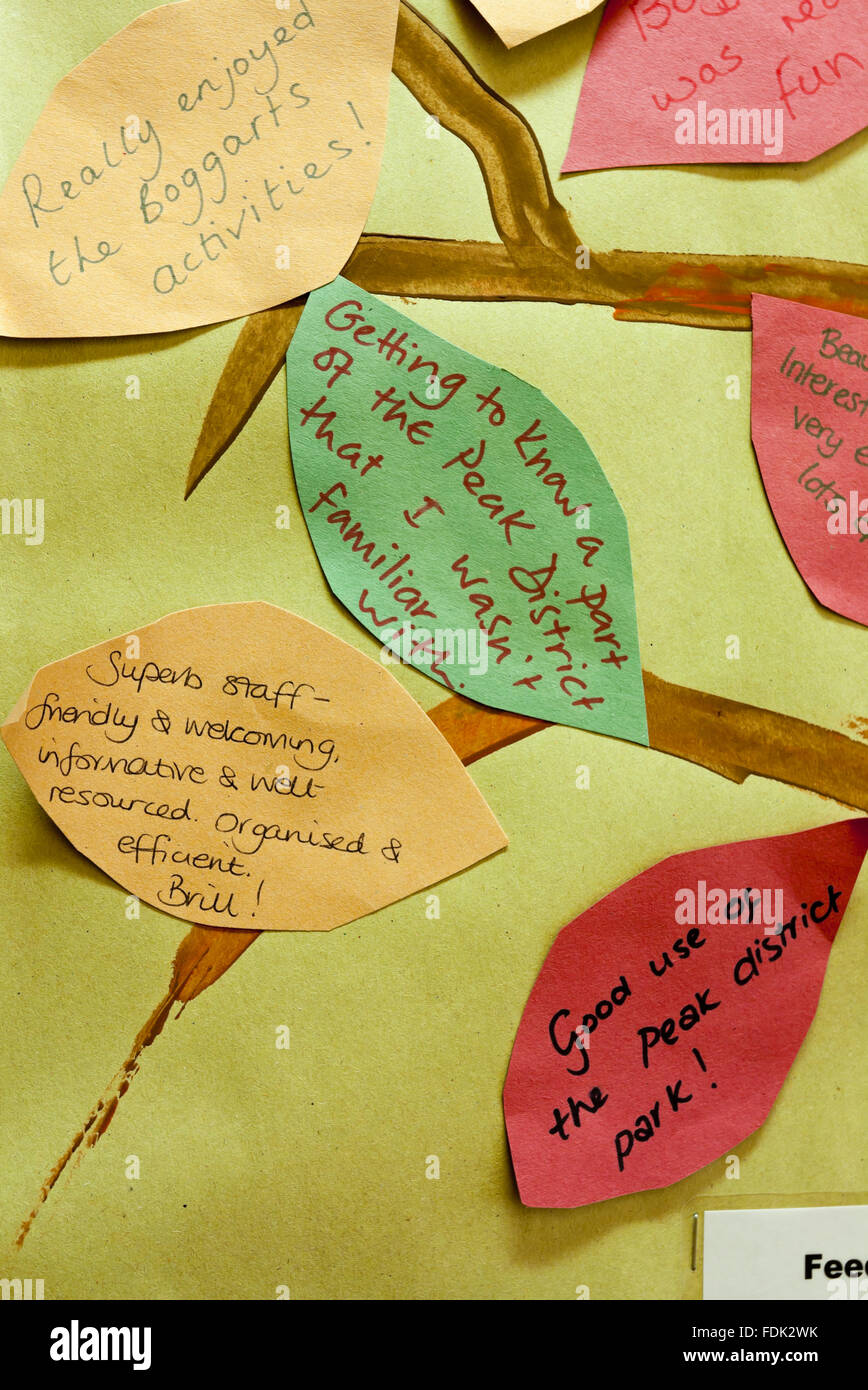 Really enjoyed
the Boggarts
activities!
was
fun
Getting to know a part
of the Peak District
that I wasn't
familiar
with.
Interest
very
lots
Superb staff -
friendly & welcoming,
informative & well
resourced. Organised &
efficient.
Brill!
Good use of
the peak district
park!
Feed
alamy
Image ID: FDK2WK
www.alamy.com